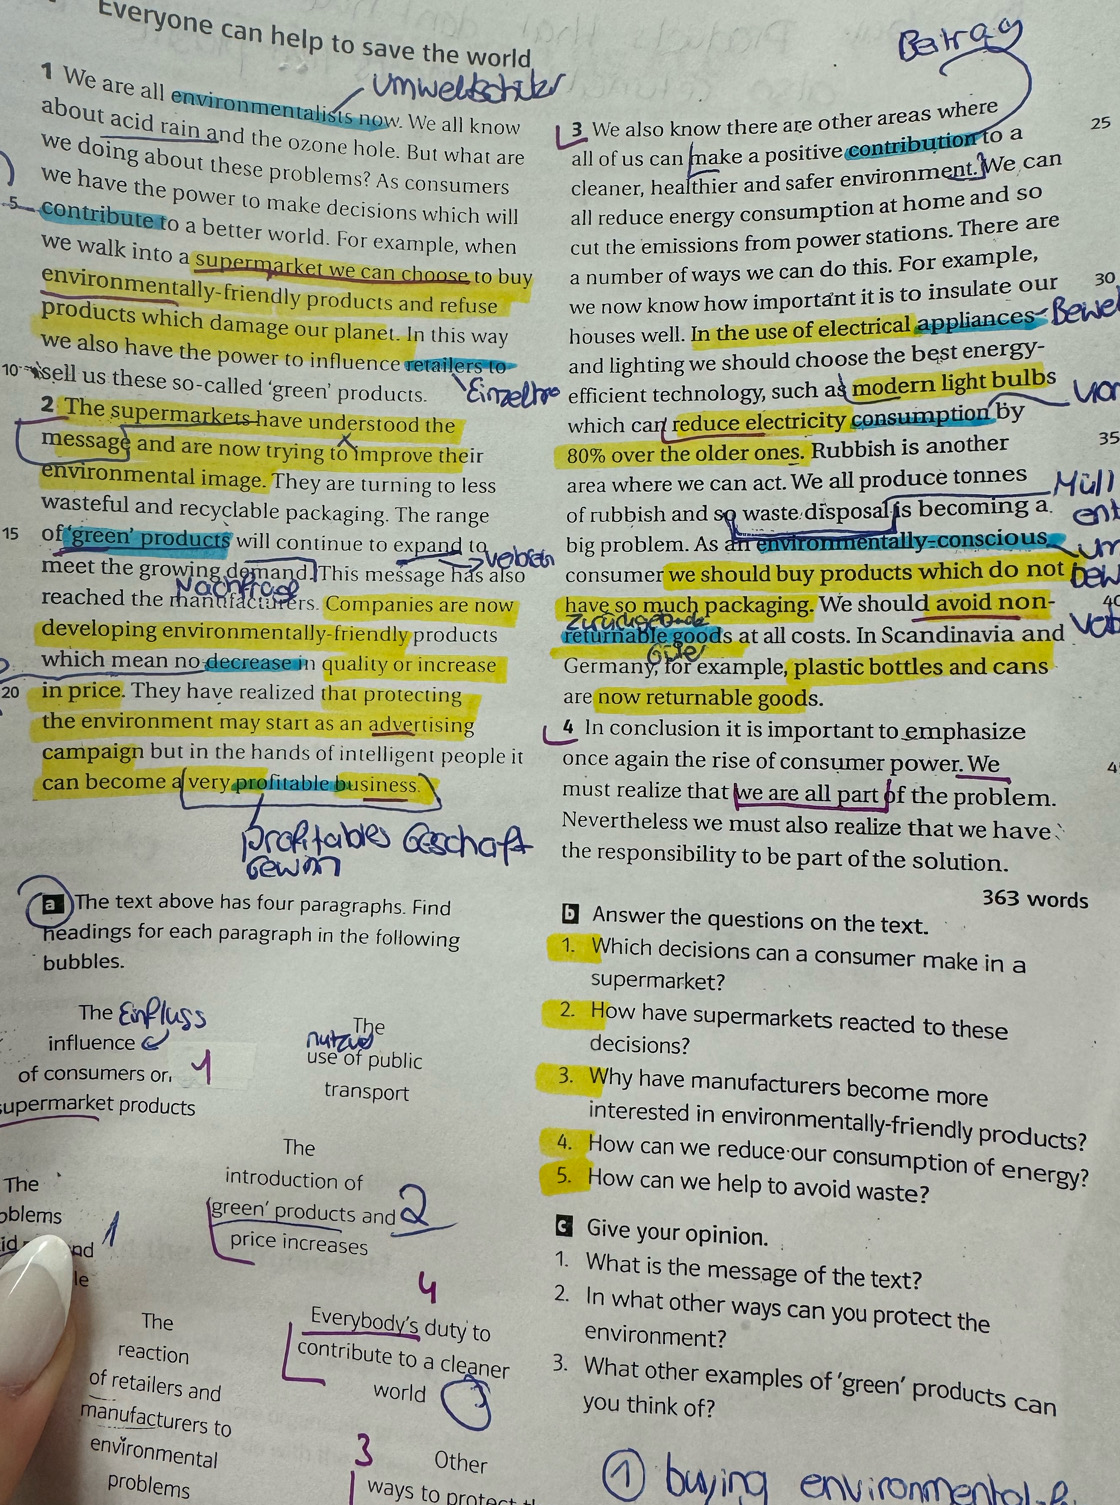 Everyone can help to save the world
Umweltschützer
1 We are all environmentalists now. We all know
about acid rain and the ozone hole. But what are
we doing about these problems? As consumers
we have the power to make decisions which will
5
contribute to a better world. For example, when
we walk into a supermarket we can choose to buy
environmentally-friendly products and refuse
products which damage our planet. In this way
we also have the power to influence retailers to
10
sell us these so-called 'green' products.
2 The supermarkets have understood the
message and are now trying to improve their
environmental image. They are turning to less
wasteful and recyclable packaging. The range
15
of 'green' products will continue to expand to
meet the growing demand. This message has also
Nachfrage
reached the manufacturers. Companies are now
developing environmentally-friendly products
which mean no decrease in quality or increase
20
in price. They have realized that protecting
the environment may start as an advertising
campaign but in the hands of intelligent people it
can become a very profitable business.
profitables Geschäft
Gewinn
Beitrag
3 We also know there are other areas where
25
all of us can make a positive contribution to a
cleaner, healthier and safer environment. We can
all reduce energy consumption at home and so
cut the emissions from power stations. There are
a number of ways we can do this. For example,
30
we now know how important it is to insulate our
houses well. In the use of electrical appliances
and lighting we should choose the best energy-
efficient technology, such as modern light bulbs
which can reduce electricity consumption by
35
80% over the older ones. Rubbish is another
area where we can act. We all produce tonnes
Müll
of rubbish and so waste disposal is becoming a
ent
big problem. As an environmentally-conscious
um
consumer we should buy products which do not
bew
have so much packaging. We should avoid non-
returnable goods at all costs. In Scandinavia and
Güter
Germany, for example, plastic bottles and cans
are now returnable goods.
4 In conclusion it is important to emphasize
once again the rise of consumer power. We
must realize that we are all part of the problem.
Nevertheless we must also realize that we have
the responsibility to be part of the solution.
363 words
a The text above has four paragraphs. Find
headings for each paragraph in the following
bubbles.
The Einfluss
influence
of consumers on
1
supermarket products
The
use of public
transport
The
introduction of
'green' products and
2
price increases
The
1
4
Everybody's duty to
contribute to a cleaner
world
3
The
reaction
of retailers and
manufacturers to
environmental
problems
3
Other
ways to protect
b Answer the questions on the text.
1. Which decisions can a consumer make in a
supermarket?
2. How have supermarkets reacted to these
decisions?
3. Why have manufacturers become more
interested in environmentally-friendly products?
4. How can we reduce our consumption of energy?
5. How can we help to avoid waste?
c Give your opinion.
1. What is the message of the text?
2. In what other ways can you protect the
environment?
3. What other examples of 'green' products can
you think of?
1 buying environmental-